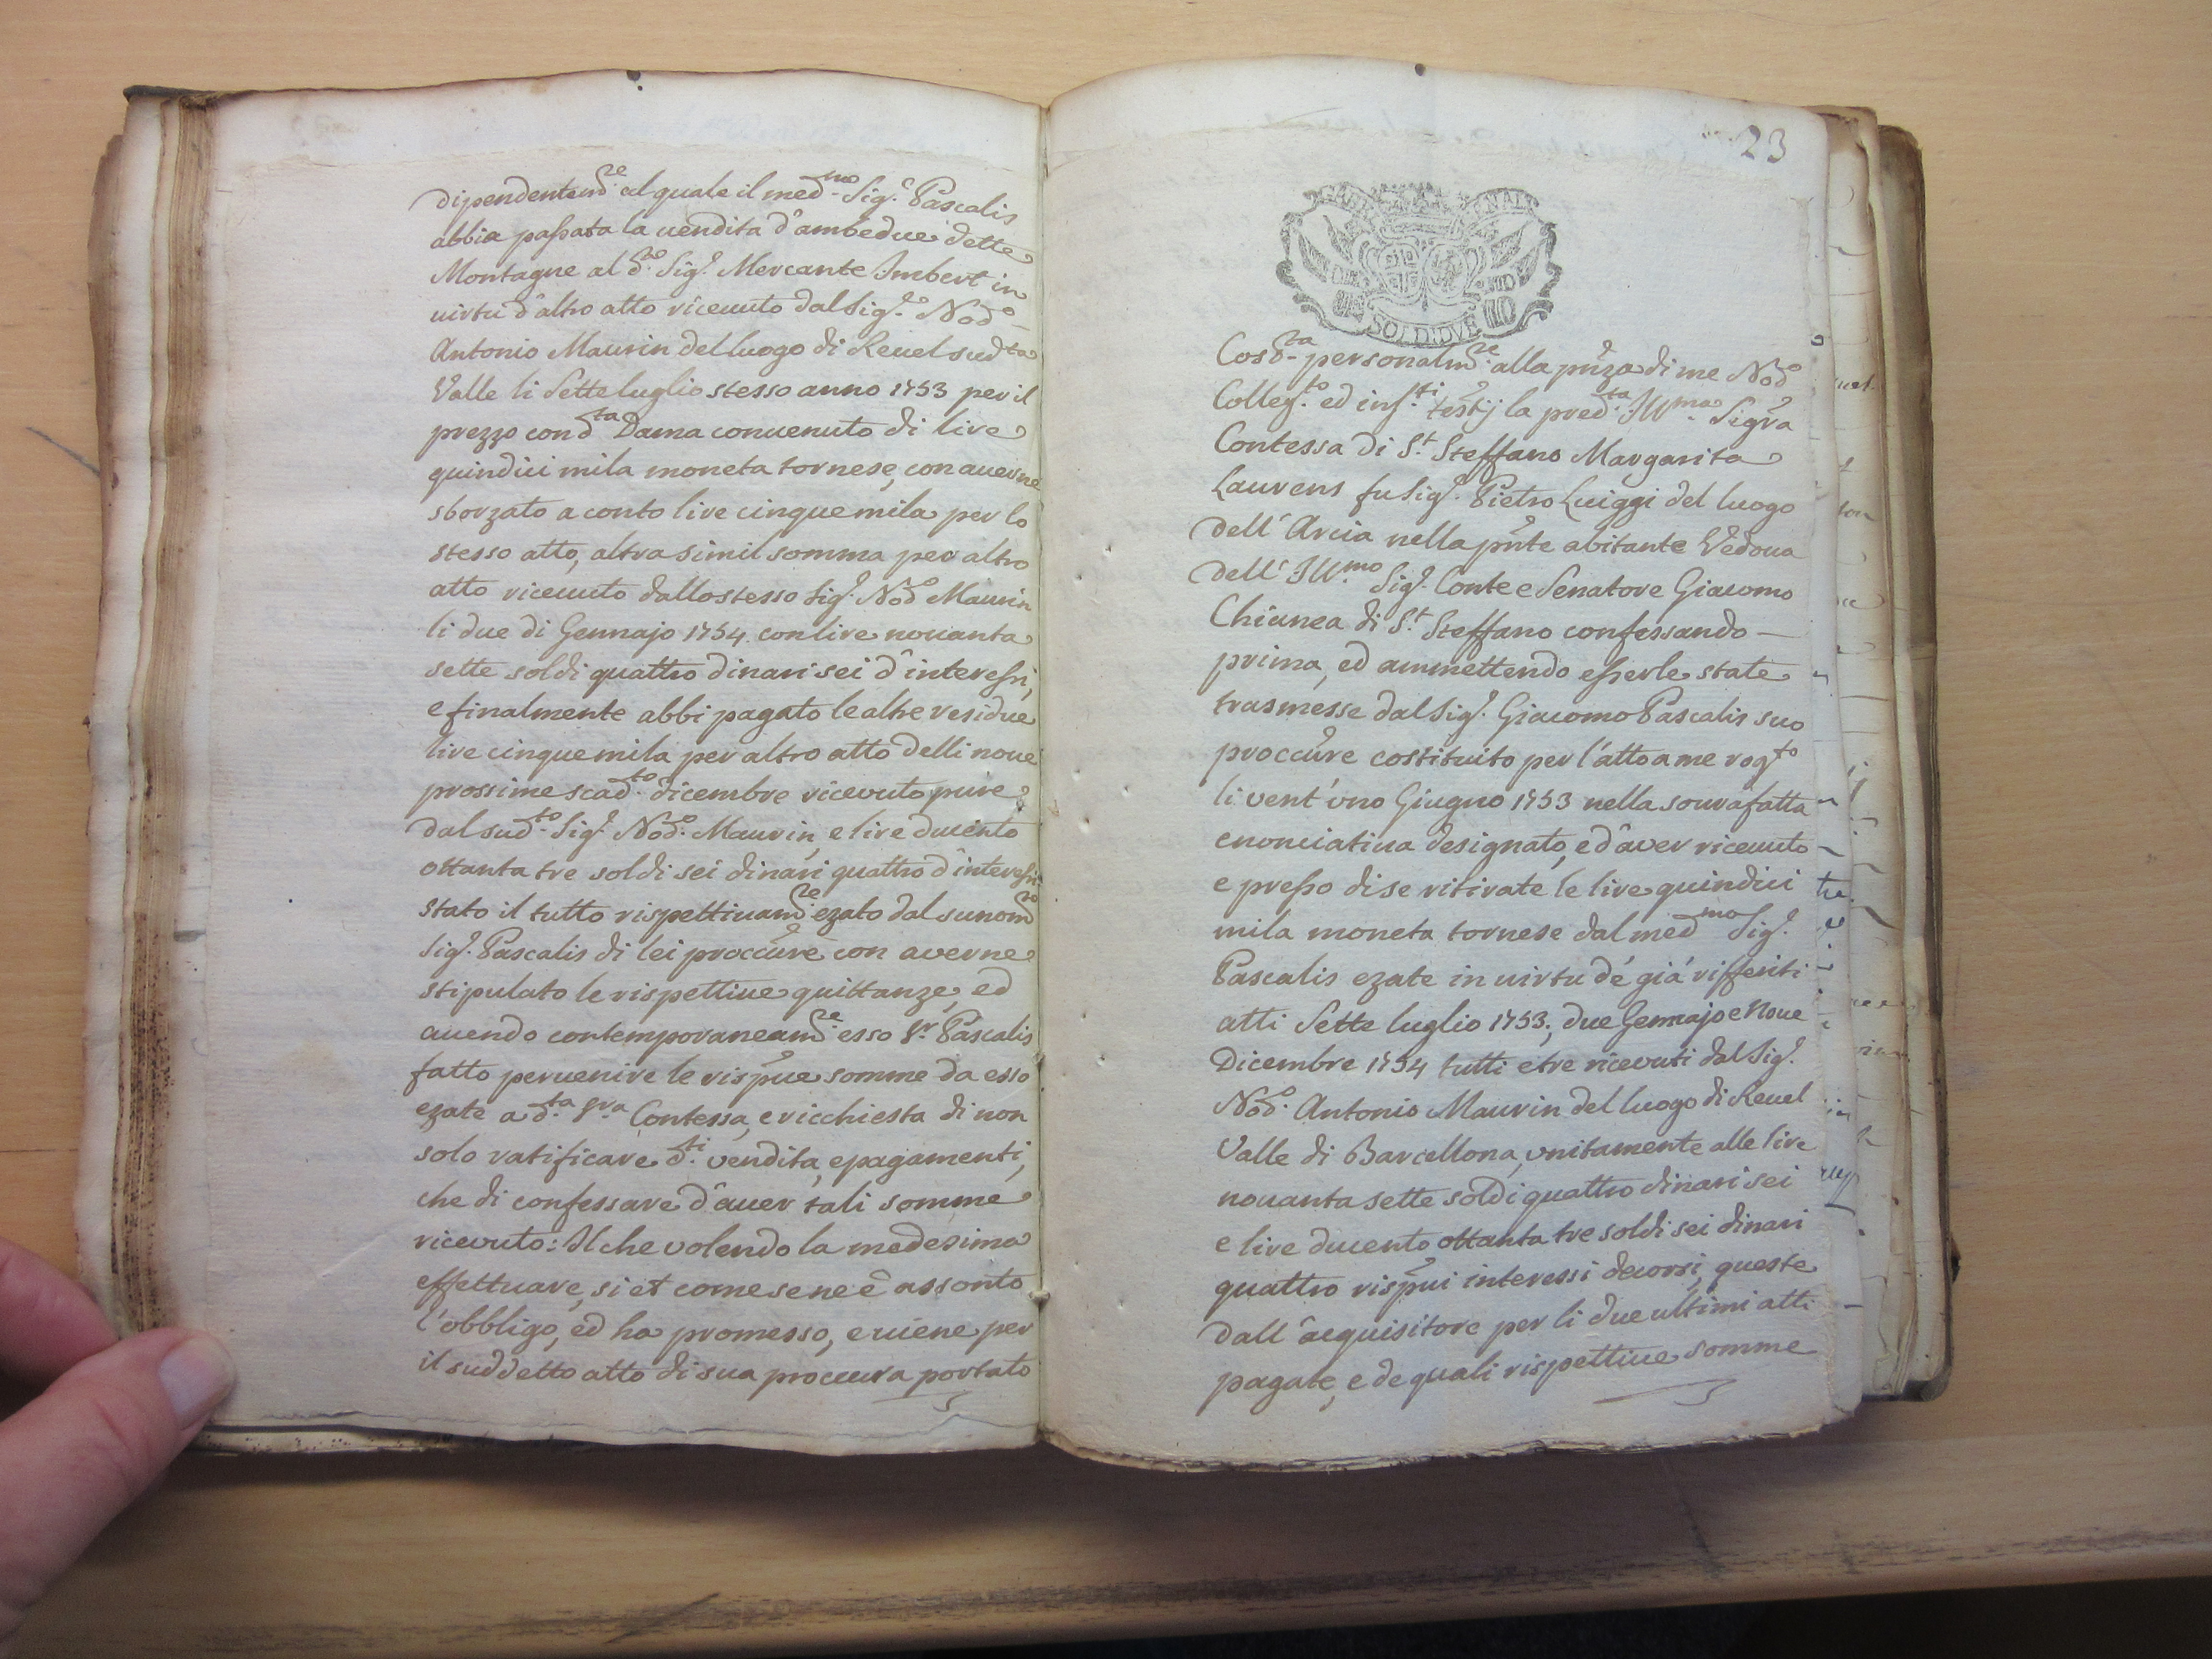 dipendentem.te al quale il med.mo Sig.r Pascalis
abbia passata la uendita d'ambedue dette
Montagne al d.to Sig.r Mercante Imbert in
uirtu d'altro atto riceuuto dal Sig.r Nod.o
Antonio Maurin del luogo di Reuel sud.ta
Valle li Sette luglio stesso anno 1753 per il
prezzo con d.ta Dama conuenuto di lire
quindici mila moneta tornese, con auerne
sborzato a conto lire cinque mila per lo
stesso atto, altra simil somma per altro
atto riceuuto dallo stesso Sig.r Nod.o Maurin
li due di Gennajo 1754. con lire nouanta
sette soldi quattro dinari sei d'interessi,
e finalmente abbi pagato le altre residue
lire cinque mila per altro atto delli noue
prossime scad.to dicembre ricevuto pure
dal sud.to Sig.r Nod.o Maurin, e lire ducento
ottanta tre soldi sei dinari quattro d'interessi
stato il tutto rispettiuam.te ezato dal sunom.to
Sig.r Pascalis di lei proccure con averne
stipulato le rispettiue quittanze, ed
auendo contemporaneam.te esso S.r Pascalis
fatto peruenire le rispue somme da esso
ezate a d.ta S.ra Contessa, e ricchiesta di non
solo ratificare d.ti vendita, e pagamenti,
che di confessare d'auer tali somme
ricevuto: Il che volendo la medesima
effettuare, si et come se ne è assonto
l'obbligo, ed ha promesso, e uiene per
il suddetto atto di sua proccura portato
23
SOLDI DVE
Cosd.ta personalm.te alla pnza di me Nod.o
Colleg.to ed inf.tti testij la pred.ta Ill.ma Sigra
Contessa di S.t Steffano Margarita
Laurens fu Sig.r Pietro Luiggi del luogo
dell'Arcia nella pnte abitante Vedoua
dell'Ill.mo Sig.r Conte e Senatore Giacomo
Chianea di S.t Steffano confessando —
prima, ed ammettendo esserle state
trasmesse dal Sig.r Giacomo Pascalis suo
proccure costituito per l'atto a me rog.to
li vent'uno Giugno 1753 nella soura fatta
enonciatiua designato, ed aver riceuuto
e presso di se ritirate le lire quindici
mila moneta tornese dal med.mo Sig.r
Pascalis ezate in uirtu de' già rifferiti
atti Sette luglio 1753; due Gennajo e Noue
Dicembre 1754 tutti e tre ricevuti dal Sig.r
Nod.o Antonio Maurin del luogo di Reuel
Valle di Barcellona, unitamente alle lire
nouanta sette soldi quattro dinari sei
e lire ducento ottanta tre soldi sei dinari
quattro rispui interessi decorsi, queste
dall'acquisitore per li due ultimi atti
pagate, e de quali rispettiue somme